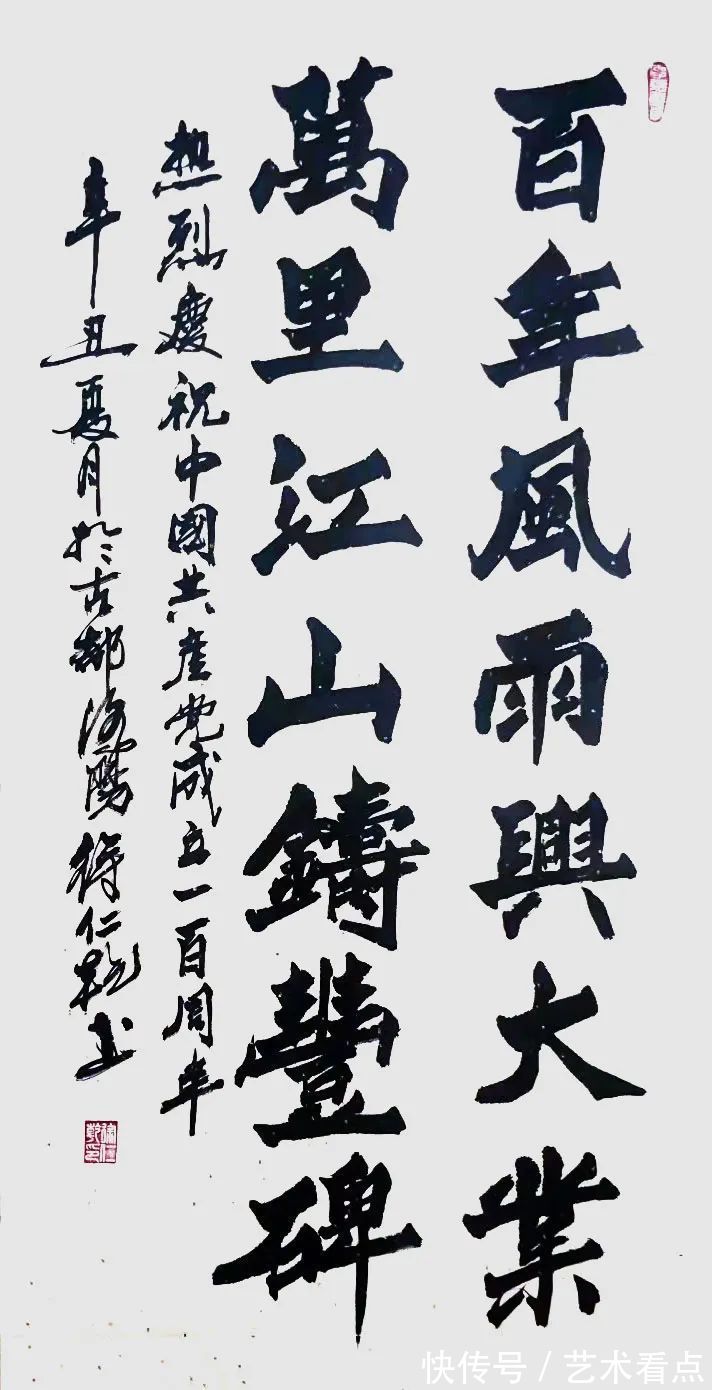 百年風雨興大業
萬里江山鑄豐碑
熱烈慶祝中國共產党成立一百周年
辛丑夏月於古都洛陽徐仁乾书
快传号 / 艺术看点